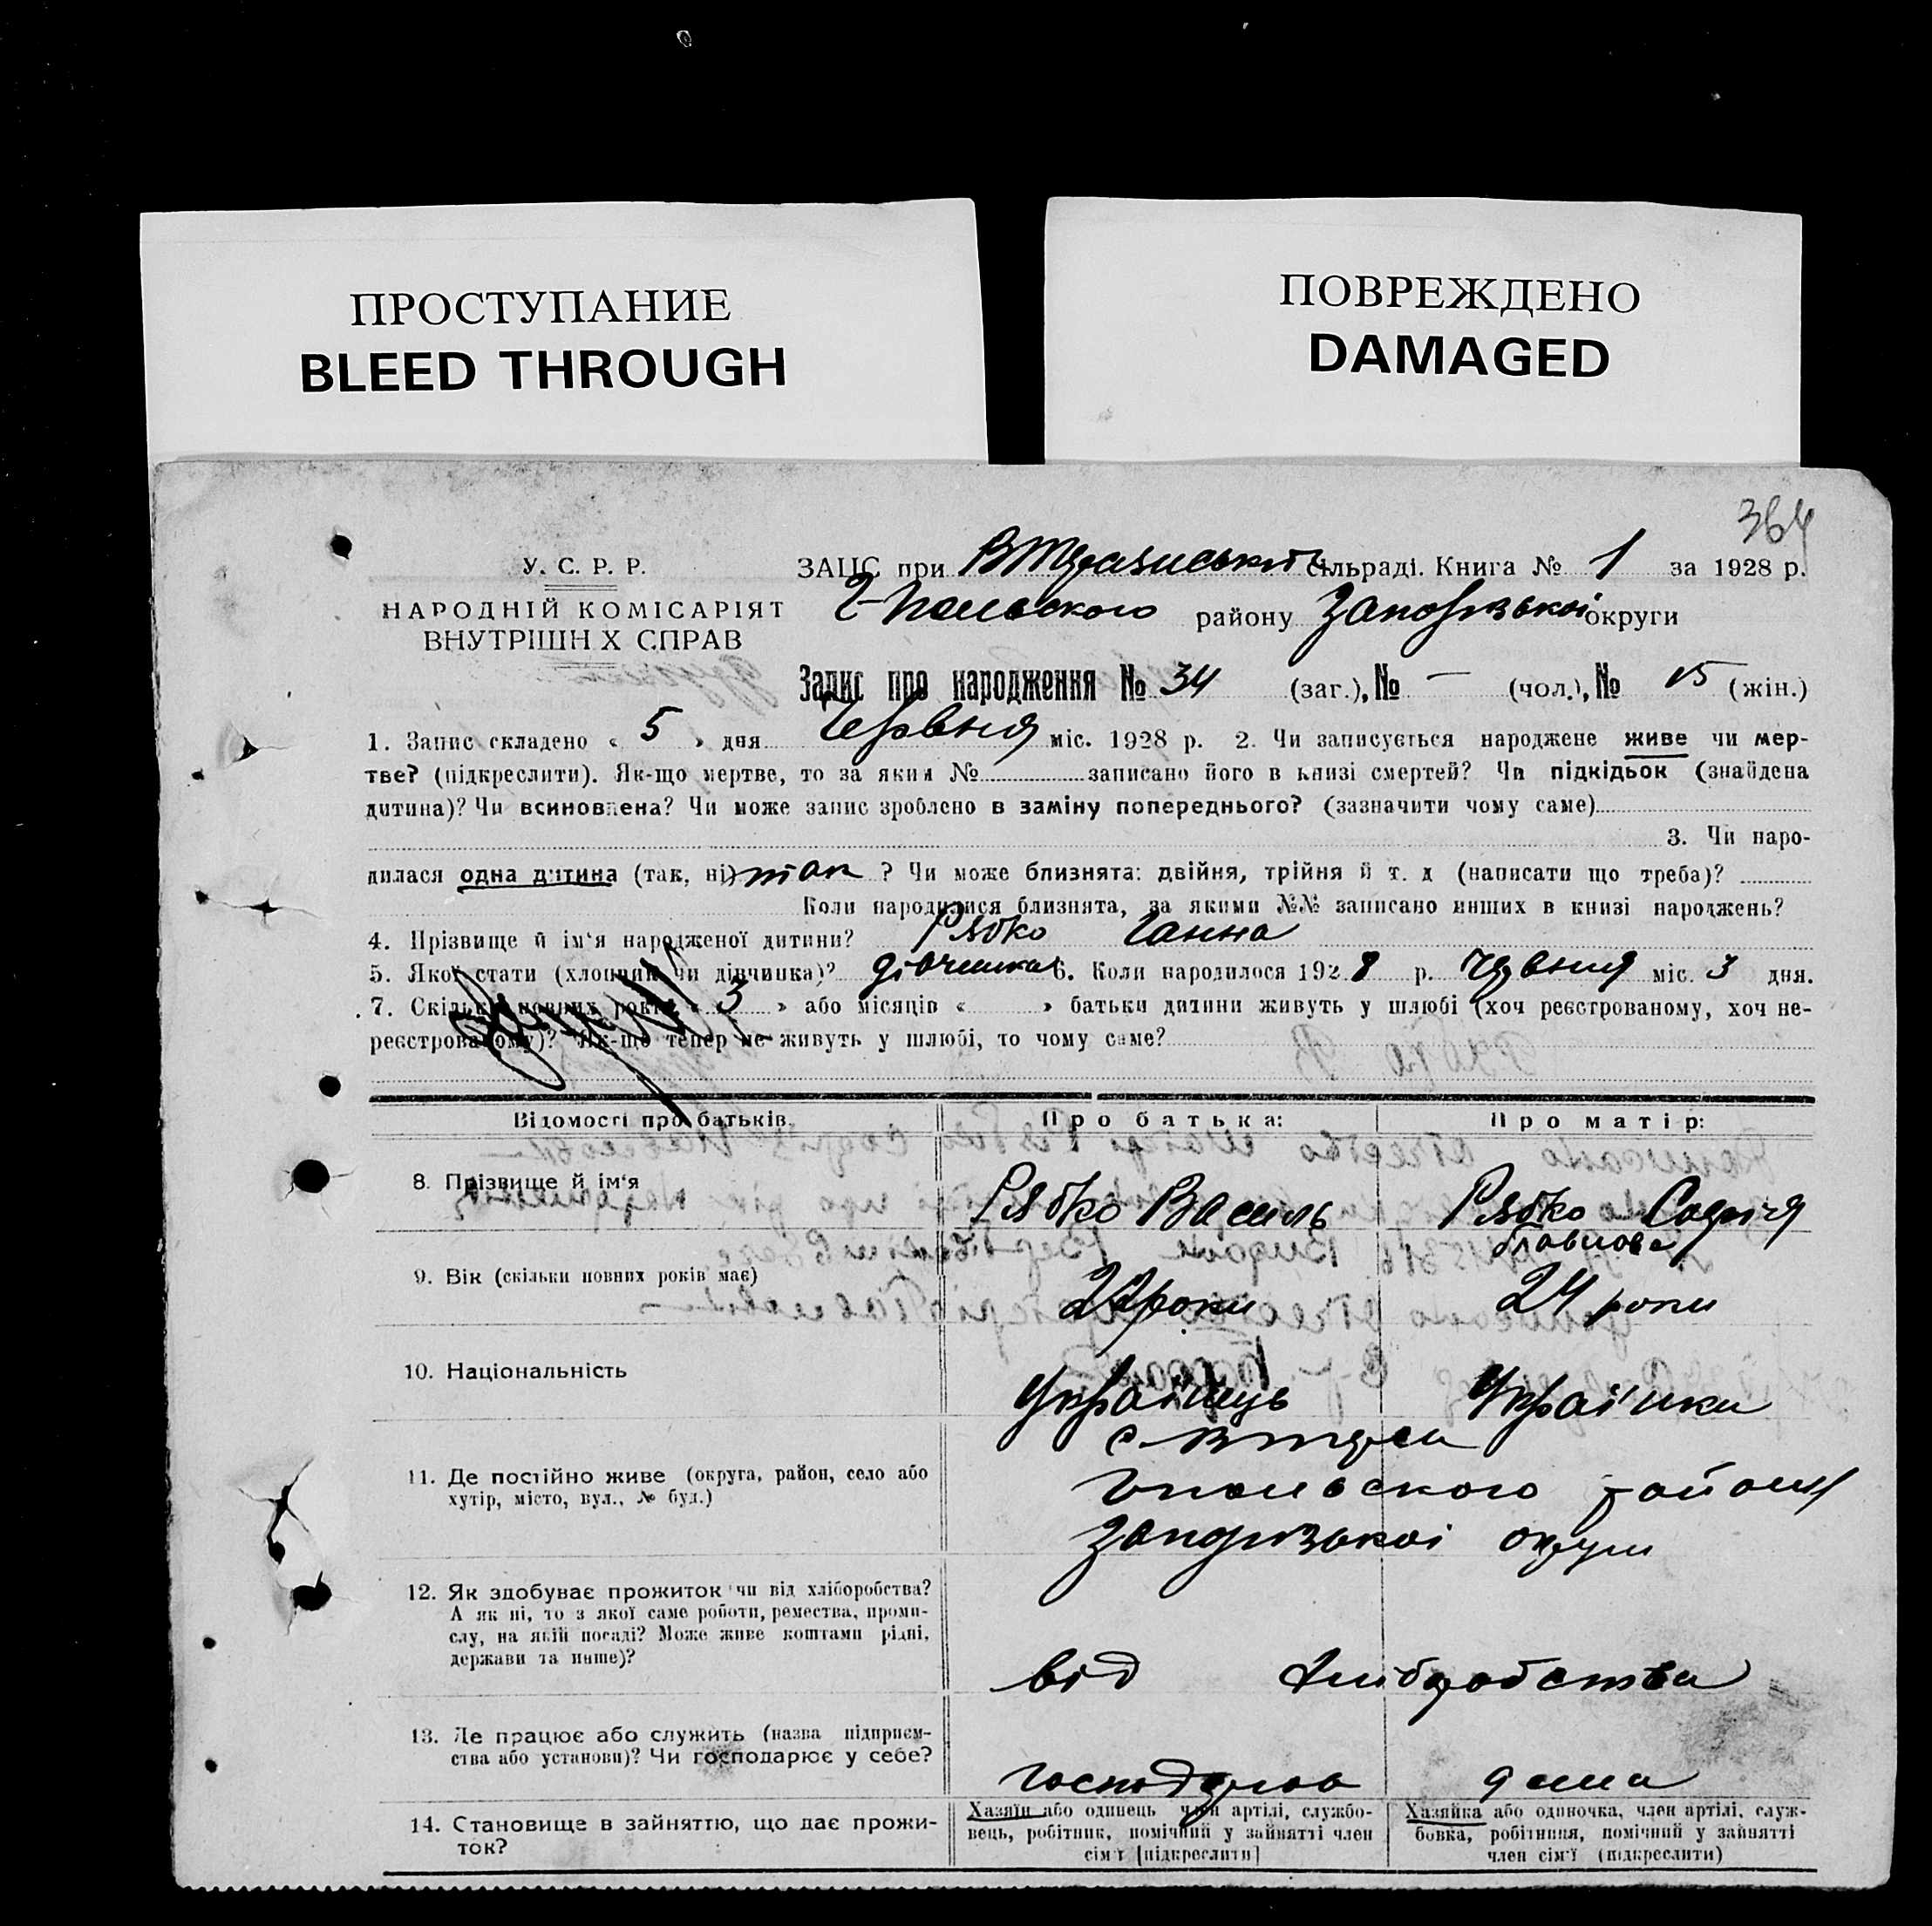 ПРОСТУПАНИЕ
BLEED THROUGH
ПОВРЕЖДЕНО
DAMAGED
364
У. С. Р. Р.
НАРОДНІЙ КОМІСАРІЯТ
ВНУТРІШН Х СПРАВ
ЗАЦС при сільраді. Книга № 1 за 1928 р.
району Запорізької округи
Запис про народження № 34 (заг.), № — (чол.), № 15 (жін.)
1. Запис складено « 5 » дня Червня міс. 1928 р. 2. Чи записується народжене живе чи мер-
тве? (підкреслити). Як-що мертве, то за яким № записано його в книзі смертей? Чи підкідьок (знайдена
дитина)? Чи всиновлена? Чи може запис зроблено в заміну попереднього? (зазначити чому саме)
3. Чи наро-
дилася одна дитина (так, ні) так ? Чи може близнята: двійня, трійня й т. д (написати що треба)?
Коли народилися близнята, за якими №№ записано инших в книзі народжень?
4. Прізвище й ім'я народженої дитини? Рябко Ганна
5. Якої стати (хлопчик чи дівчинка)? дівчинка 6. Коли народилося 1928 р. червня міс. 3 дня.
7. Скільки повних років « 3 » або місяців « » батьки дитини живуть у шлюбі (хоч реєстрованому, хоч не-
реєстрованому)? Як-що тепер не живуть у шлюбі, то чому саме?
Відомості про батьків.
Про батька:
Про матір:
8. Прізвище й ім'я
Рябко Василь
Рябко Софія
Павлова
9. Вік (скільки повних років має)
22 роки
24 роки
10. Національність
Українець
Українка
11. Де постійно живе (округа, район, село або
хутір, місто, вул., № буд.)
району
Запорізької округи
12. Як здобуває прожиток чи від хліборобства?
А як ні, то з якої саме роботи, ремества, проми-
слу, на якій посаді? Може живе коштами рідні,
держави та инше)?
від хліборобства
13. Де працює або служить (назва підприєм-
ства або установи)? Чи господарює у себе?
господарює дома
14. Становище в зайняттю, що дає прожи-
ток?
Хазяїн або одинець член артілі, службо-
вець, робітник, помічний у зайнятті член
сім'ї [підкреслити]
Хазяйка або одиночка, член артілі, служ-
бовка, робітниця, помічний у зайнятті
член сім'ї (підкреслити)